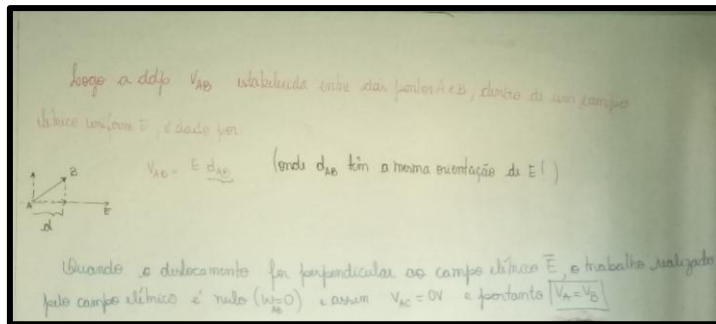 Logo a ddp V_AB estabelecida entre dois pontos A e B, dentro de um campo
elétrico uniforme E, é dado por:
V_AB = E d_AB (onde d_AB têm a mesma orientação de E!)
B
A
E
d
Quando o deslocamento for perpendicular ao campo elétrico E, o trabalho realizado
pelo campo elétrico é nulo (W_AB=0) e assim V_AC = 0V e portanto V_A = V_B